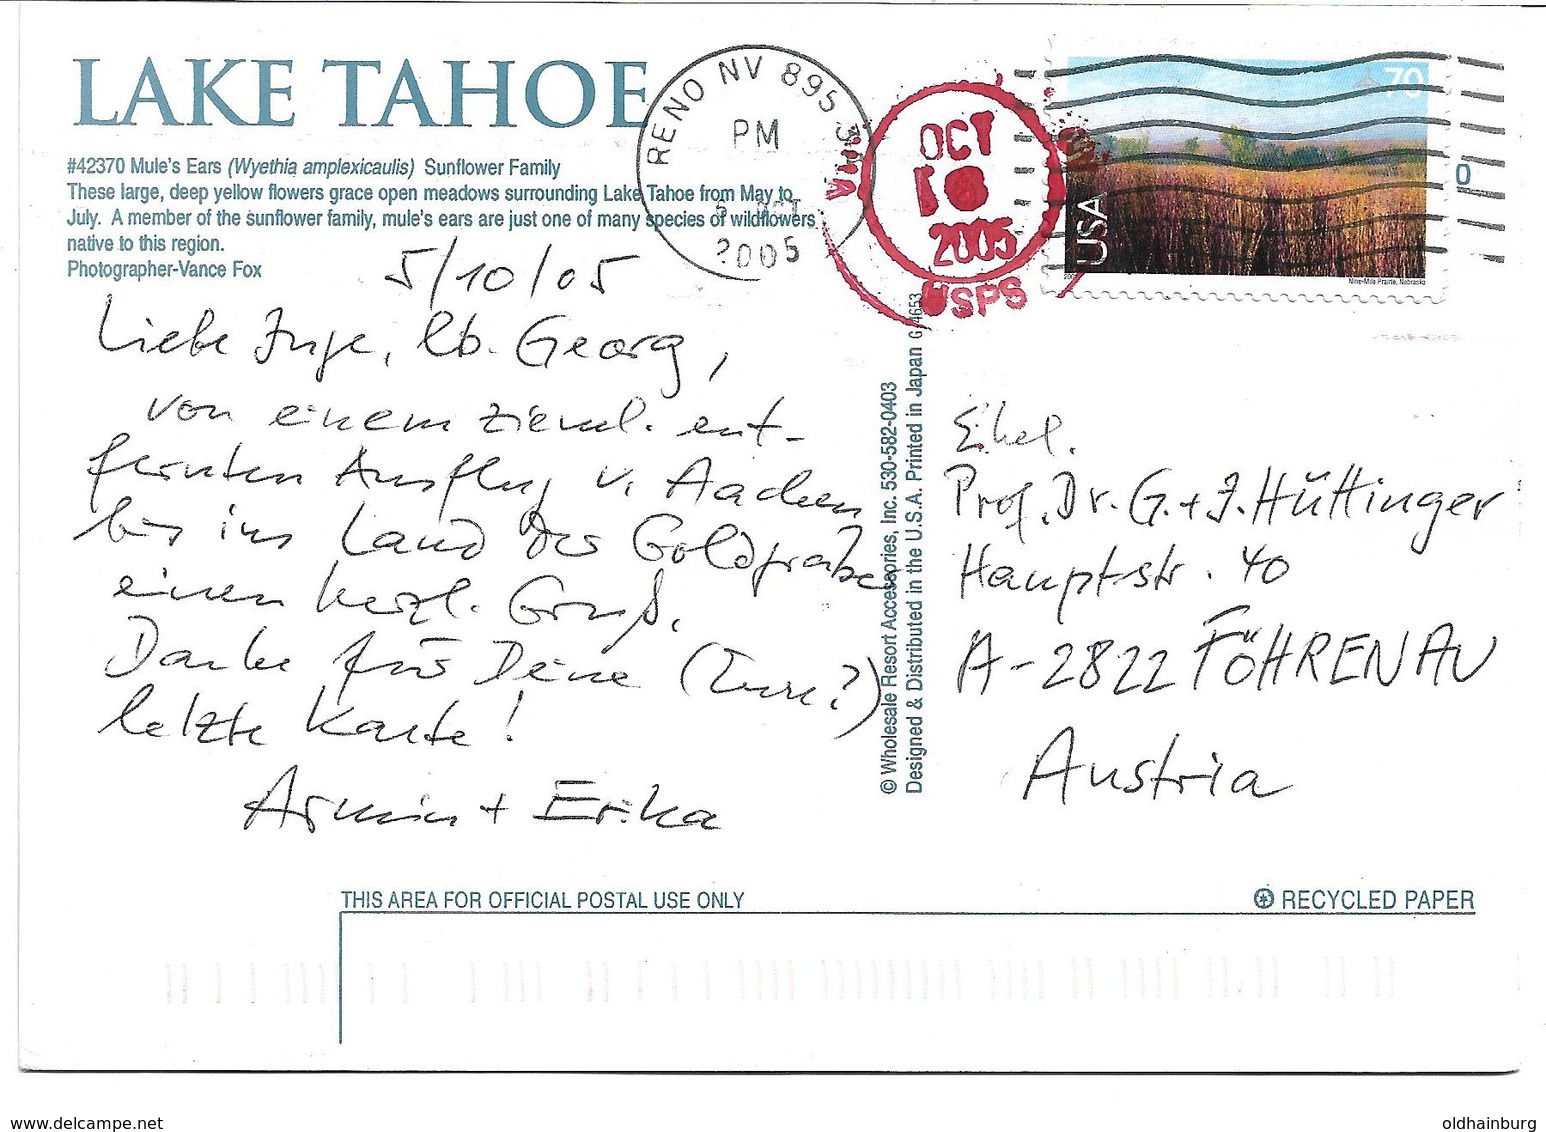 LAKE TAHOE
#42370 Mule's Ears (Wyethia amplexicaulis) Sunflower Family
These large, deep yellow flowers grace open meadows surrounding Lake Tahoe from May to
July. A member of the sunflower family, mule's ears are just one of many species of wildflowers
native to this region.
Photographer-Vance Fox
RENO NV 895
PM
5 OCT
2005
OCT
2005
USPS
70
USA
Nine-Mile Prairie, Nebraska
5/10/05
Liebe Inge, lb. Georg,
von einem zieml. ent-
fernten Ausflug v. Aachen
bis ins Land der Goldgräber
einen herzl. Gruß.
Danke für Deine (Eure?)
letzte Karte!
Armin + Erika
© Wholesale Resort Accessories, Inc. 530-582-0403
Designed & Distributed in the U.S.A. Printed in Japan G 4653
Prof. Dr. G. + I. Hüttinger
Hauptstr. 40
A-2822 FÖHRENAU
Austria
THIS AREA FOR OFFICIAL POSTAL USE ONLY
RECYCLED PAPER
www.delcampe.net
oldhainburg